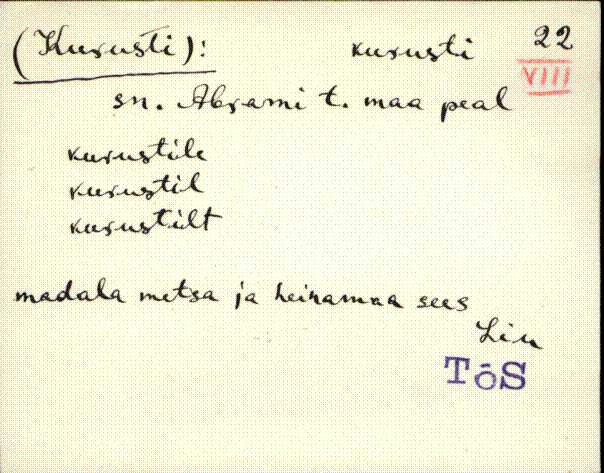 (Kurusti): kurusti 22
VIII
sn. Abrami t. maa peal
kurustile
kurustil
kurustilt
madala metsa ja heinamaa sees
Liu
TõS